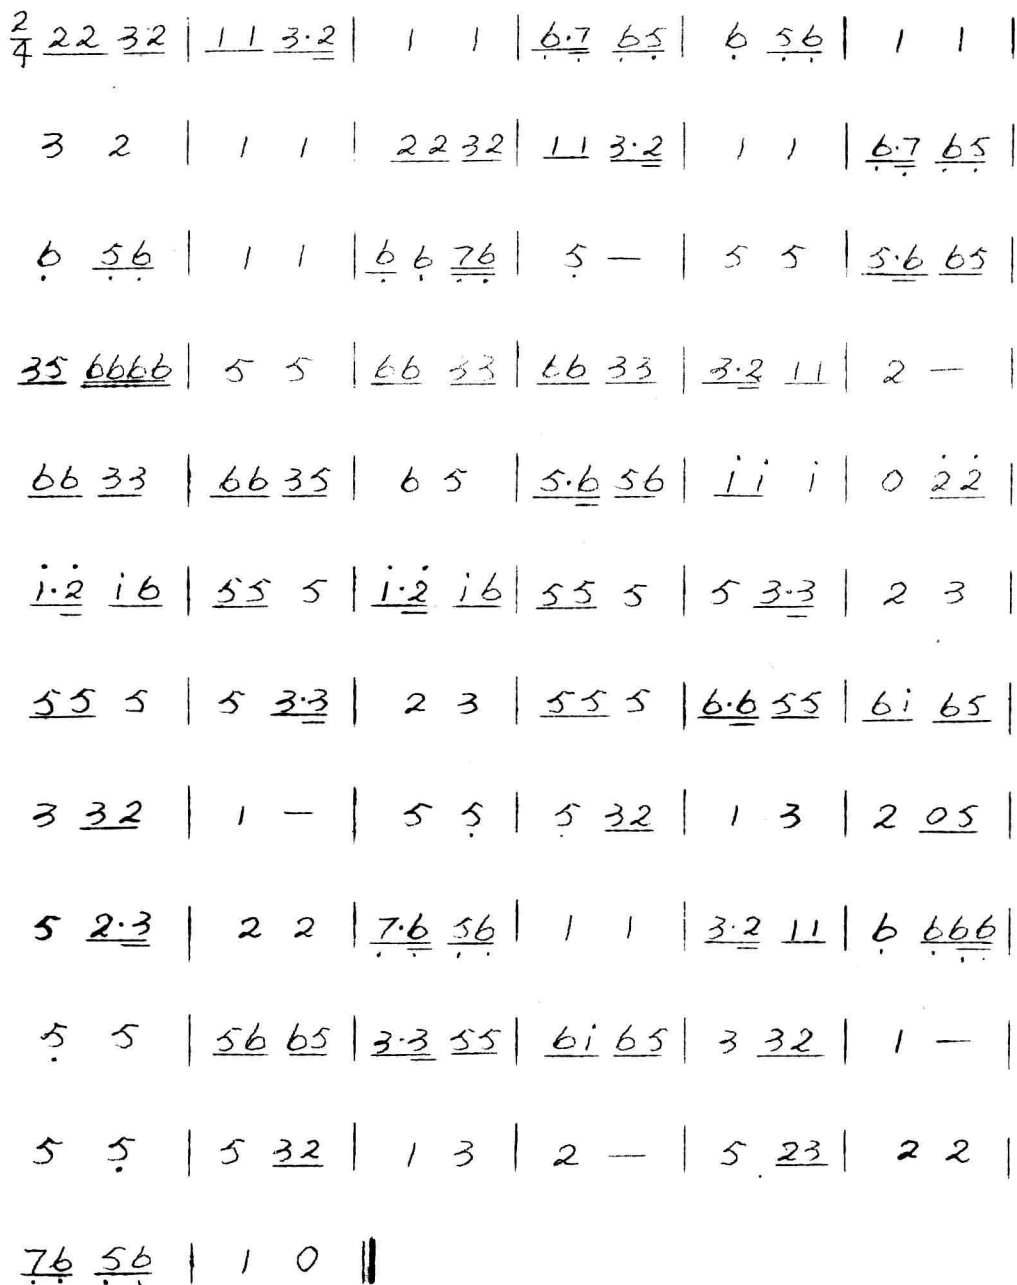 2/4 22 32 | 11 3·2 | 1 1 | 6̣·7̣ 6̣5̣ | 6̣ 5̣6̣ | 1 1 |
3 2 | 1 1 | 22 32 | 11 3·2 | 1 1 | 6̣·7̣ 6̣5̣ |
6̣ 5̣6̣ | 1 1 | 6̣ 6̣ 7̣6̣ | 5̣ — | 5 5 | 5·6 65 |
35 6666 | 5 5 | 66 33 | 66 33 | 3·2 11 | 2 — |
66 33 | 66 35 | 6 5 | 5·6 56 | 1̇1̇ 1̇ | 0 2̇2̇ |
1̇·2̇ 1̇6 | 55 5 | 1̇·2̇ 1̇6 | 55 5 | 5 3·3 | 2 3 |
55 5 | 5 3·3 | 2 3 | 55 5 | 6·6 55 | 61̇ 65 |
3 32 | 1 — | 5 5̣ | 5̣ 32 | 1 3 | 2 05 |
5 2·3 | 2 2 | 7̣·6̣ 5̣6̣ | 1 1 | 3·2 11 | 6̣ 6̣6̣6̣ |
5̣ 5 | 56 65 | 3·3 55 | 61̇ 65 | 3 32 | 1 — |
5 5̣ | 5 32 | 1 3 | 2 — | 5 23 | 2 2 |
7̣6̣ 5̣6̣ | 1 0 ‖